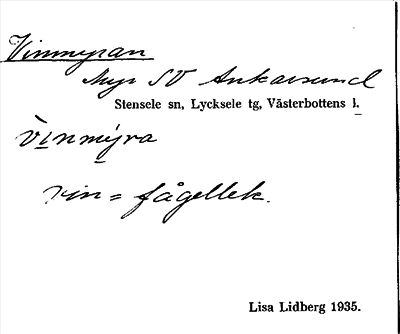 Vinmyran
Myr SV Ankarsund
Stensele sn, Lycksele tg, Västerbottens l.
vìnmýra
vin = fågellek.
Lisa Lidberg 1935.